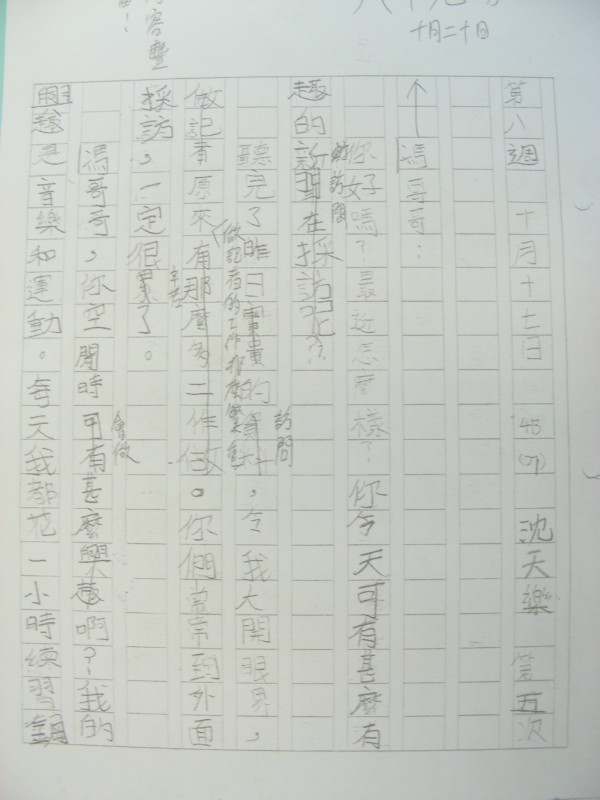 十月二十日
第八週 十月十七日 4B (7) 沈天樂 第五次
馮哥哥：
你好嗎？最近怎麼樣？你今天可有甚麼有
趣的訪問在採訪呢？
的訪問
聽完了昨日寶貴的資料，令我大開眼界，
訪問
做記者原來有那麼多工作做。你們常常到外面
做記者的工作
辛苦
採訪，一定很累了。
馮哥哥，你空閒時可有甚麼興趣啊？我的
會做
興趣是音樂和運動。每天我都花一小時練習鋼